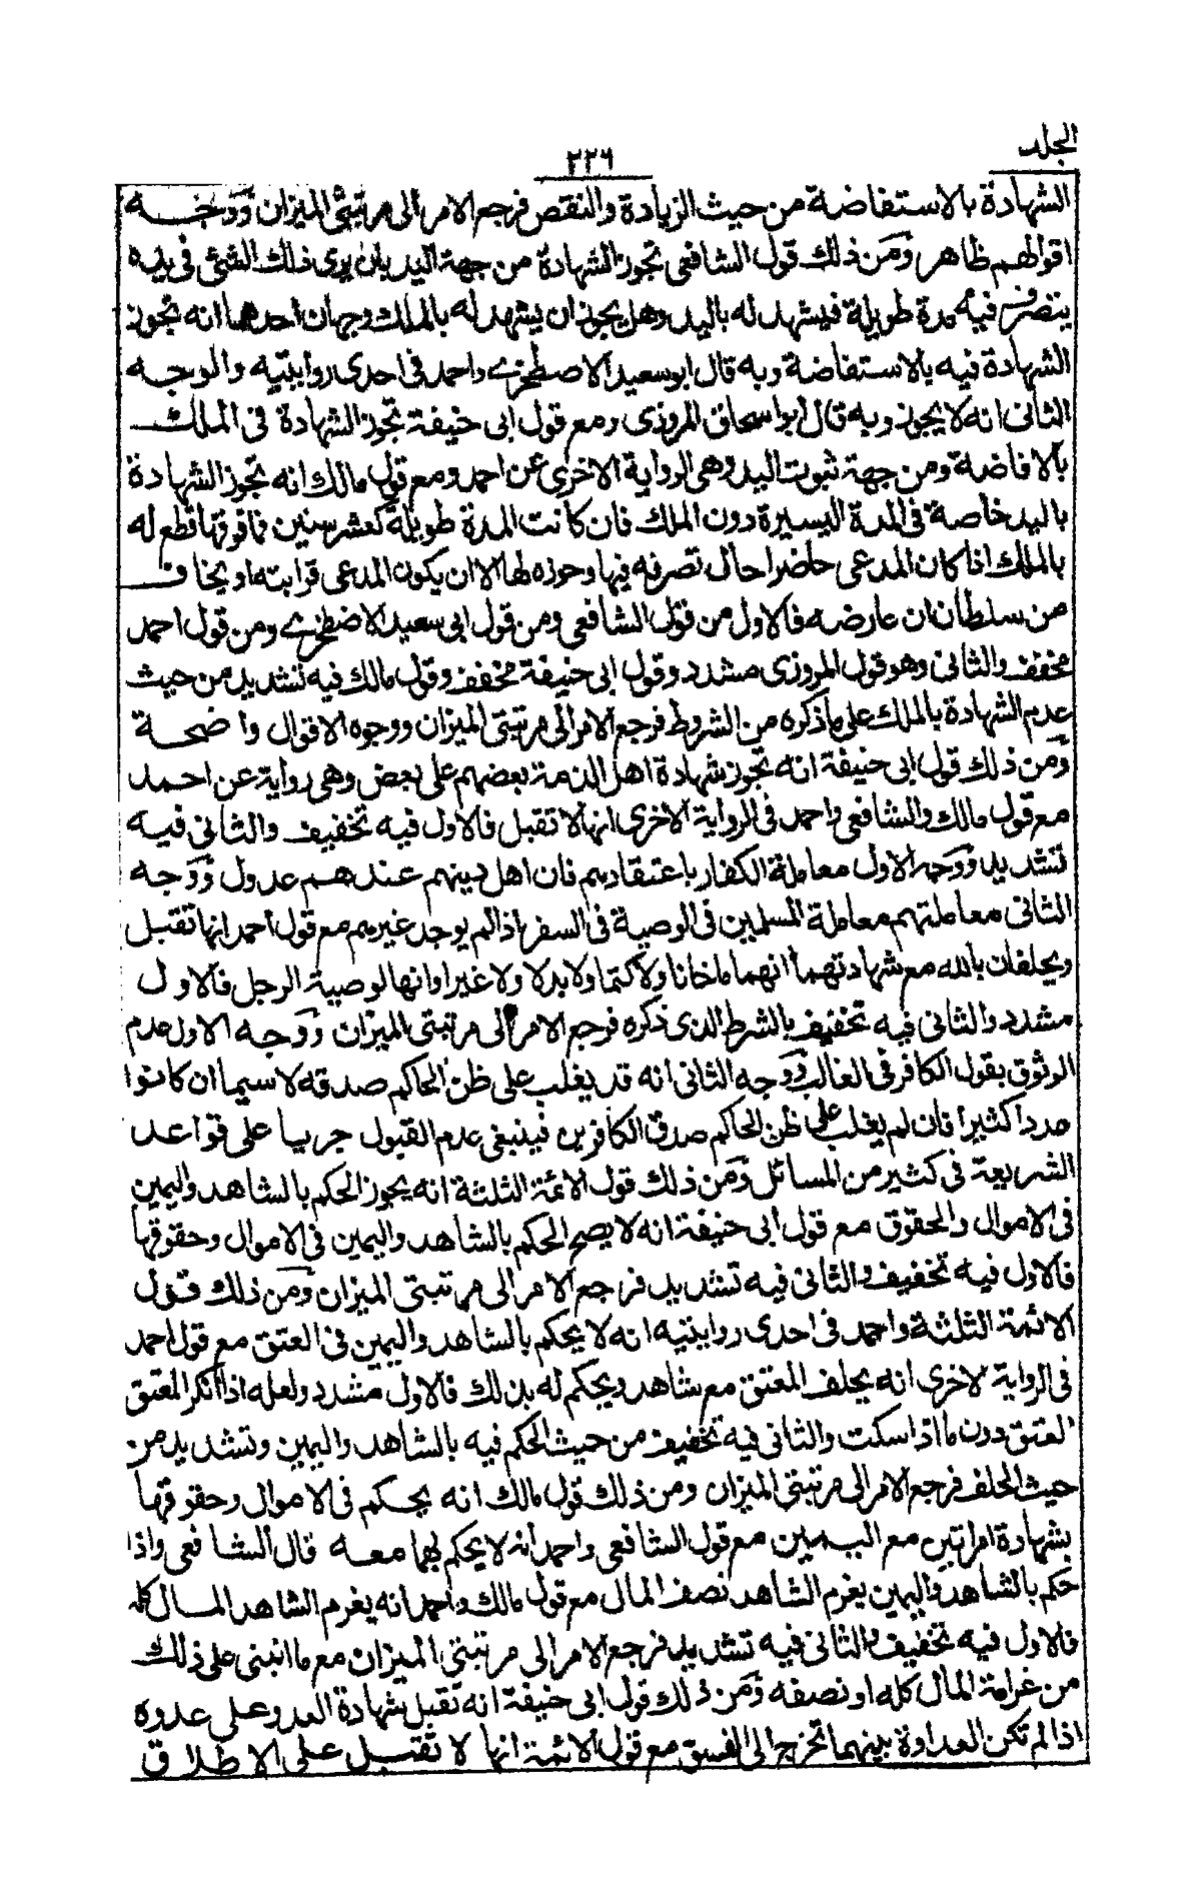 الجلد
٢٢٦
الشهادة بالاستفاضة من حيث الزيادة والنقص فرجع الامر الى مرتبتى الميزان ووجه
اقولهم ظاهر ومن ذلك قول الشافعى تجوز الشهادة من جهة اليد بان يرى ذلك الشئ فى يده
يتصرف فيه مدة طويلة فيشهد له باليد وهل يجوز ان يشهد له بالملك وجهان احدهما انه تجوز
الشهادة فيه بالاستفاضة وبه قال ابو سعيد الاصطخرى واحمد فى احدى روايتيه والوجه
الثانى انه لا يجوز وبه قال ابو اسحاق المروزى ومع قول ابى حنيفة تجوز الشهادة فى الملك
بالافاضة ومن جهة ثبوت اليد وهى الرواية الاخرى عن احمد ومع قول مالك انه تجوز الشهادة
باليد خاصة فى المدة اليسيرة دون الملك فان كانت المدة طويلة كعشر سنين فما فوقها قطع له
بالملك اذا كان المدعى حاضرا حال تصرفه فيها وحوزه لها الا ان يكون المدعى قرابته او يخاف
من سلطان ان عارضه فالاول من قول الشافعى ومن قول ابى سعيد الاصطخرى ومن قول احمد
مخفف والثانى وهو قول المروزى مشدد وقول ابى حنيفة مخفف وقول مالك فيه تشديد من حيث
عدم الشهادة بالملك على ما ذكره من الشروط فرجع الامر الى مرتبتى الميزان ووجوه الاقوال واضحة
ومن ذلك قول ابى حنيفة انه تجوز شهادة اهل الذمة بعضهم على بعض وهى رواية عن احمد
مع قول مالك والشافعى واحمد فى الرواية الاخرى انها لا تقبل فالاول فيه تخفيف والثانى فيه
تشديد ووجه الاول معاملة الكفار باعتقادهم فان اهل دينهم عندهم عدول ووجه
الثانى معاملتهم معاملة المسلمين فى الوصية فى السفر اذا لم يوجد غيرهم مع قول احمد انها تقبل
ويحلفان بالله مع شهادتهما انهما ما خانا ولا كتما ولا بدلا ولا غيرا وانها لوصية الرجل فالاول
مشدد والثانى فيه تخفيف بالشرط الذى ذكره فرجع الامر الى مرتبتى الميزان ووجه الاول عدم
الوثوق بقول الكافر فى الغالب ووجه الثانى انه قد يغلب على ظن الحاكم صدقه لا سيما ان كانوا
عددا كثيرا فان لم يغلب على ظن الحاكم صدق الكافرين فينبغى عدم القبول جريا على قواعد
الشريعة فى كثير من المسائل ومن ذلك قول الائمة الثلثة انه يجوز الحكم بالشاهد واليمين
فى الاموال والحقوق مع قول ابى حنيفة انه لا يصح الحكم بالشاهد واليمين فى الاموال وحقوقها
فالاول فيه تخفيف والثانى فيه تشديد فرجع الامر الى مرتبتى الميزان ومن ذلك قول
الائمة الثلثة واحمد فى احدى روايتيه انه لا يحكم بالشاهد واليمين فى العتق مع قول احمد
فى الرواية الاخرى انه يحلف المعتق مع شاهد ويحكم له بذلك فالاول مشدد ولعله اذا انكر المعتق
العتق دون ما اذا سكت والثانى فيه تخفيف من حيث الحكم فيه بالشاهد واليمين وتشديد من
حيث الحلف فرجع الامر الى مرتبتى الميزان ومن ذلك قول مالك انه يحكم فى الاموال وحقوقها
بشهادة امراتين مع اليمين مع قول الشافعى واحمد انه لا يحكم بهما معه قال الشافعى واذا
حكم بالشاهد واليمين يغرم الشاهد نصف المال مع قول مالك واحمد انه يغرم الشاهد المال كله
فالاول فيه تخفيف والثانى فيه تشديد فرجع الامر الى مرتبتى الميزان مع ما انبنى على ذلك
من غرامة المال كله او نصفه ومن ذلك قول ابى حنيفة انه تقبل شهادة العدو على عدوه
اذا لم تكن العداوة بينهما تخرج الى الفسق مع قول الائمة انها لا تقبل على الاطلاق